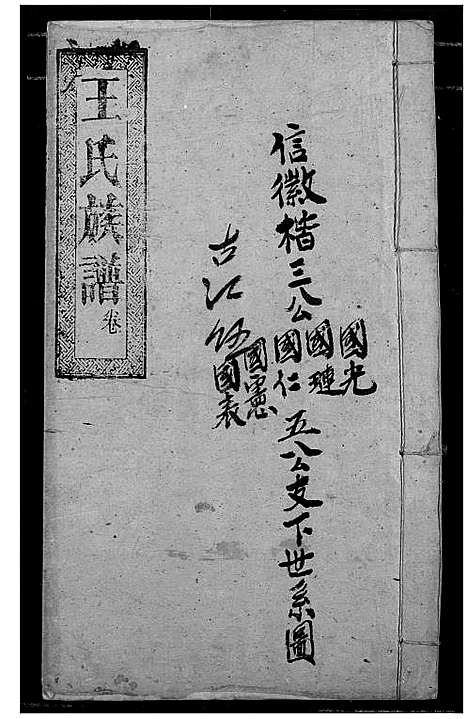 王氏族譜
卷
信徽楷三公
國光
國璉
國仁
國憲
國表
五八公支下世系圖
古江